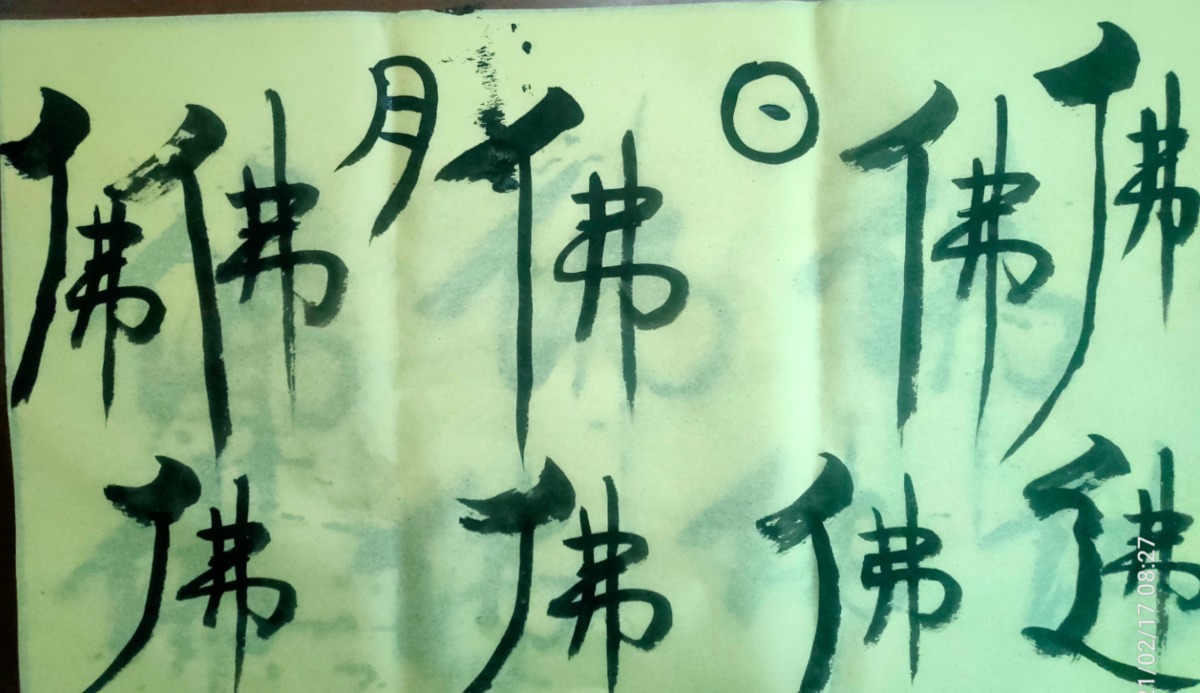 佛佛月佛日佛佛
佛佛佛佛
1/02/17 08:27